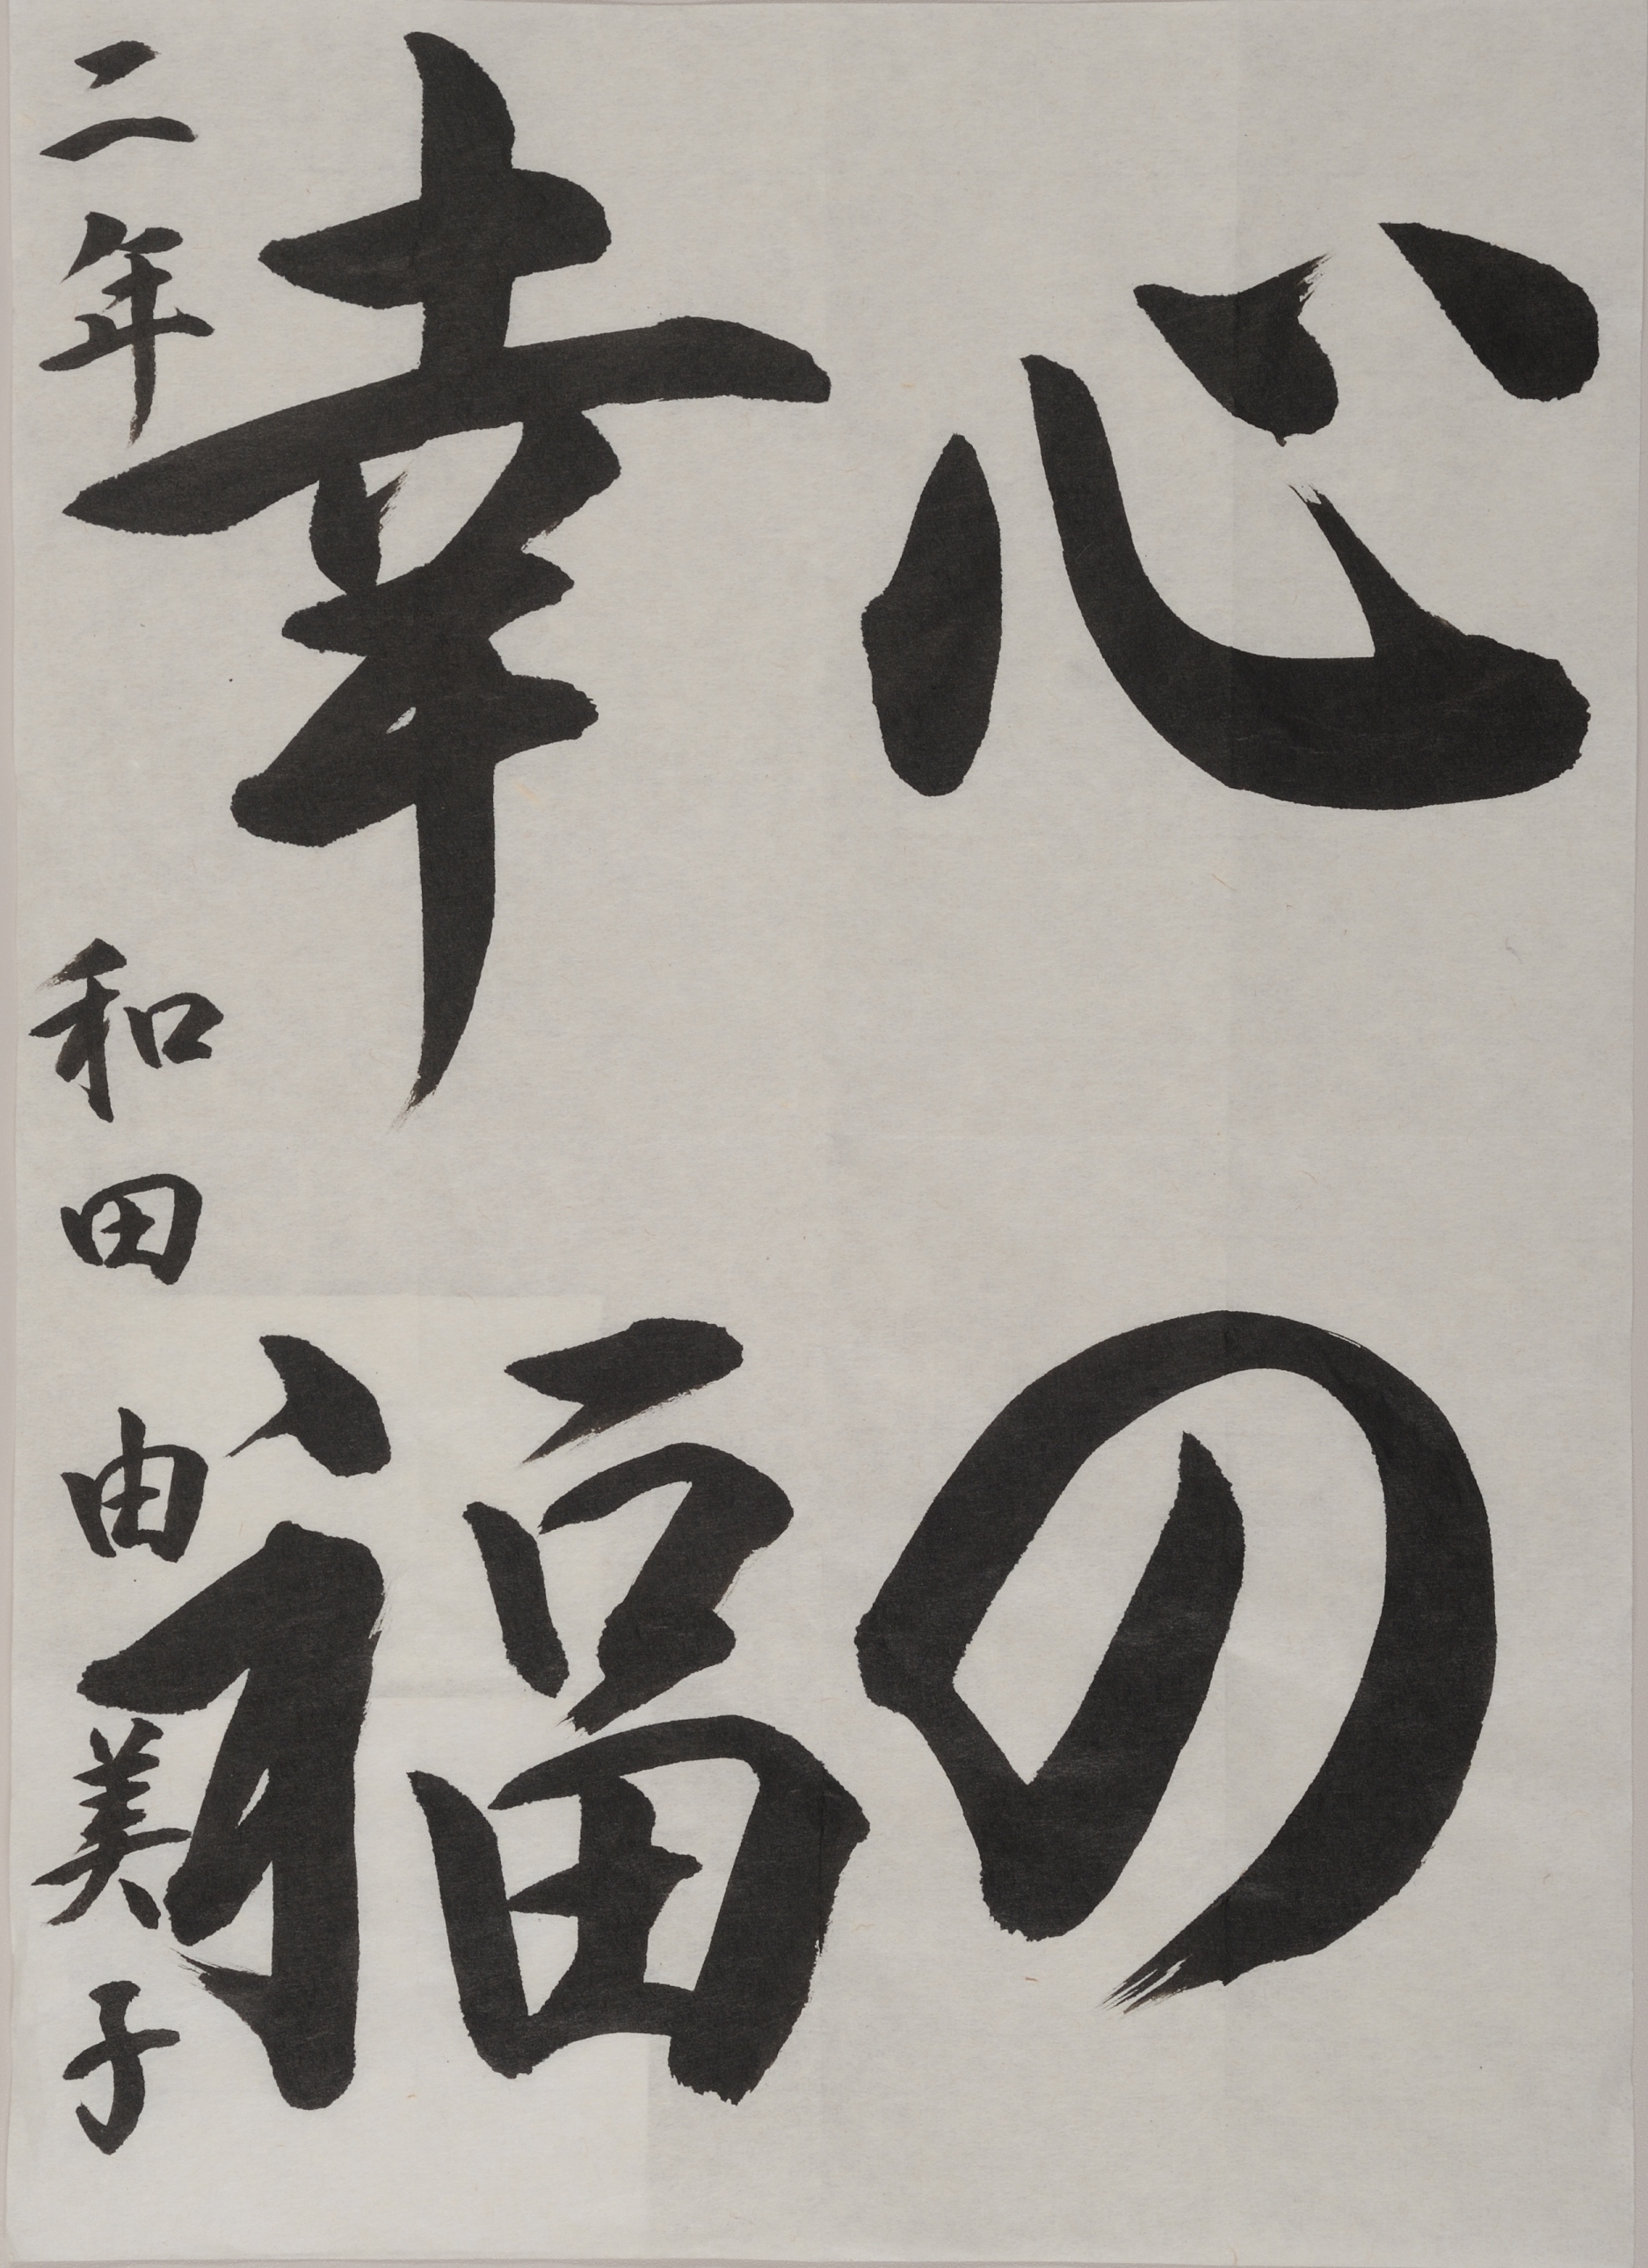 心の
幸福
二年 和田由美子